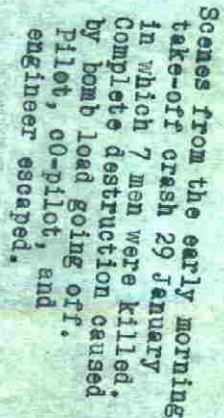 Scenes from the early morning
take-off crash 29 January
in which 7 men were killed.
Complete destruction caused
by bomb load going off.
Pilot, cO-pilot, and
engineer escaped.